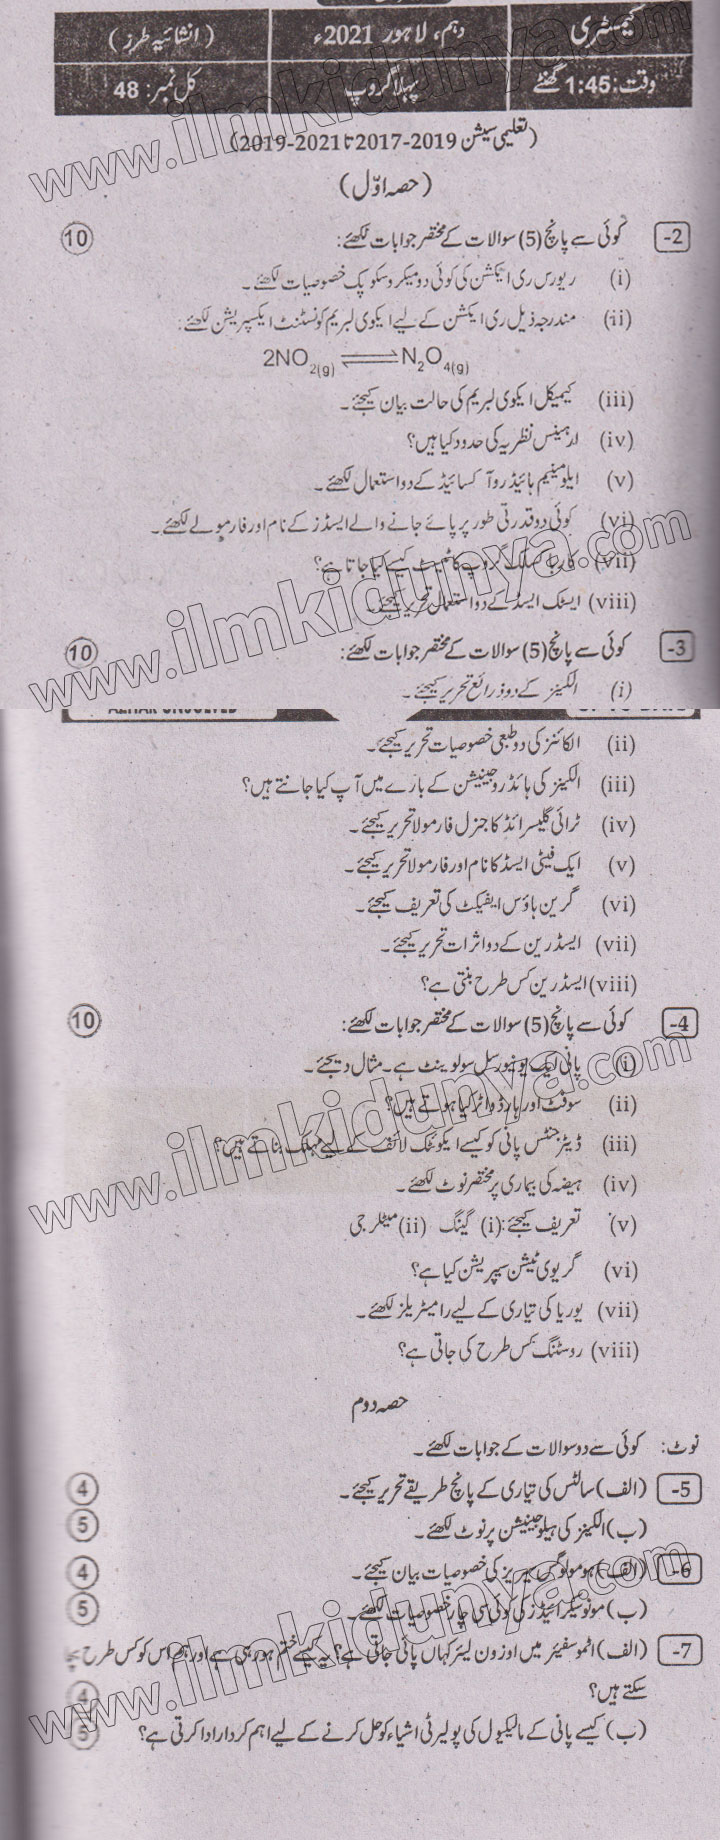 کیمسٹری
دہم، لاہور 2021ء
(انشائیہ طرز)
وقت: 1:45 گھنٹے
پہلا گروپ
کل نمبر: 48
(تعلیمی سیشن 2019-2017 تا 2021-2019)
(حصہ اوّل)
2- کوئی سے پانچ (5) سوالات کے مختصر جوابات لکھئے: 10
(i) ریورس ری ایکشن کی کوئی دو میکروسکوپک خصوصیات لکھئے۔
(ii) مندرجہ ذیل ری ایکشن کے لیے ایکوی لبریم کونسٹنٹ ایکسپریشن لکھئے:
2NO2(g) ⇌ N2O4(g)
(iii) کیمیکل ایکوی لبریم کی حالت بیان کیجئے۔
(iv) ارہینس نظریہ کی حدود کیا ہیں؟
(v) ایلومینیم ہائیڈروآکسائیڈ کے دو استعمال لکھئے۔
(vi) کوئی دو قدرتی طور پر پائے جانے والے ایسڈز کے نام اور فارمولے لکھئے۔
(vii) کاربوکسلک گروپ کا ٹیسٹ کیسے کیا جاتا ہے؟
(viii) ایسٹک ایسڈ کے دو استعمال تحریر کیجئے۔
3- کوئی سے پانچ (5) سوالات کے مختصر جوابات لکھئے: 10
(i) الکینز کے دو ذرائع تحریر کیجئے۔
(ii) الکائنز کی دو طبعی خصوصیات تحریر کیجئے۔
(iii) الکینز کی ہائڈروجینیشن کے بارے میں آپ کیا جانتے ہیں؟
(iv) ٹرائی گلیسرائڈ کا جنرل فارمولا تحریر کیجئے۔
(v) ایک فیٹی ایسڈ کا نام اور فارمولا تحریر کیجئے۔
(vi) گرین ہاؤس ایفیکٹ کی تعریف کیجئے۔
(vii) ایسڈ رین کے دو اثرات تحریر کیجئے۔
(viii) ایسڈ رین کس طرح بنتی ہے؟
4- کوئی سے پانچ (5) سوالات کے مختصر جوابات لکھئے: 10
(i) پانی ایک یونیورسل سولوینٹ ہے۔ مثال دیجئے۔
(ii) سوفٹ اور ہارڈ واٹر کیا ہوتے ہیں؟
(iii) ڈیٹرجنٹس پانی کو کیسے ایکوٹک لائف کے لیے مہلک بناتے ہیں؟
(iv) ہیضہ کی بیماری پر مختصر نوٹ لکھئے۔
(v) تعریف کیجئے: (i) گینگ (ii) میٹلرجی
(vi) گریوی ٹیشن سیپریشن کیا ہے؟
(vii) یوریا کی تیاری کے لیے را میٹریلز لکھئے۔
(viii) روسٹنگ کس طرح کی جاتی ہے؟
حصہ دوم
نوٹ: کوئی سے دو سوالات کے جوابات لکھئے۔
5- (الف) سالٹس کی تیاری کے پانچ طریقے تحریر کیجئے۔ 4
(ب) الکینز کی ہیلوجینیشن پر نوٹ لکھئے۔ 5
6- (الف) ہومولوگس سیریز کی خصوصیات بیان کیجئے۔ 4
(ب) مونوسیکرائیڈز کی کوئی سی چار خصوصیات لکھئے۔ 5
7- (الف) اٹموسفیئر میں اوزون لیئر کہاں پائی جاتی ہے؟ یہ کیسے ختم ہو رہی ہے اور ہم اس کو کس طرح بچا
سکتے ہیں؟ 4
(ب) کیسے پانی کے مالیکیول کی پولیرٹی اشیاء کو حل کرنے کے لیے اہم کردار ادا کرتی ہے؟ 5
www.ilmkidunya.com
www.ilmkidunya.com
www.ilmkidunya.com
www.ilmkidunya.com